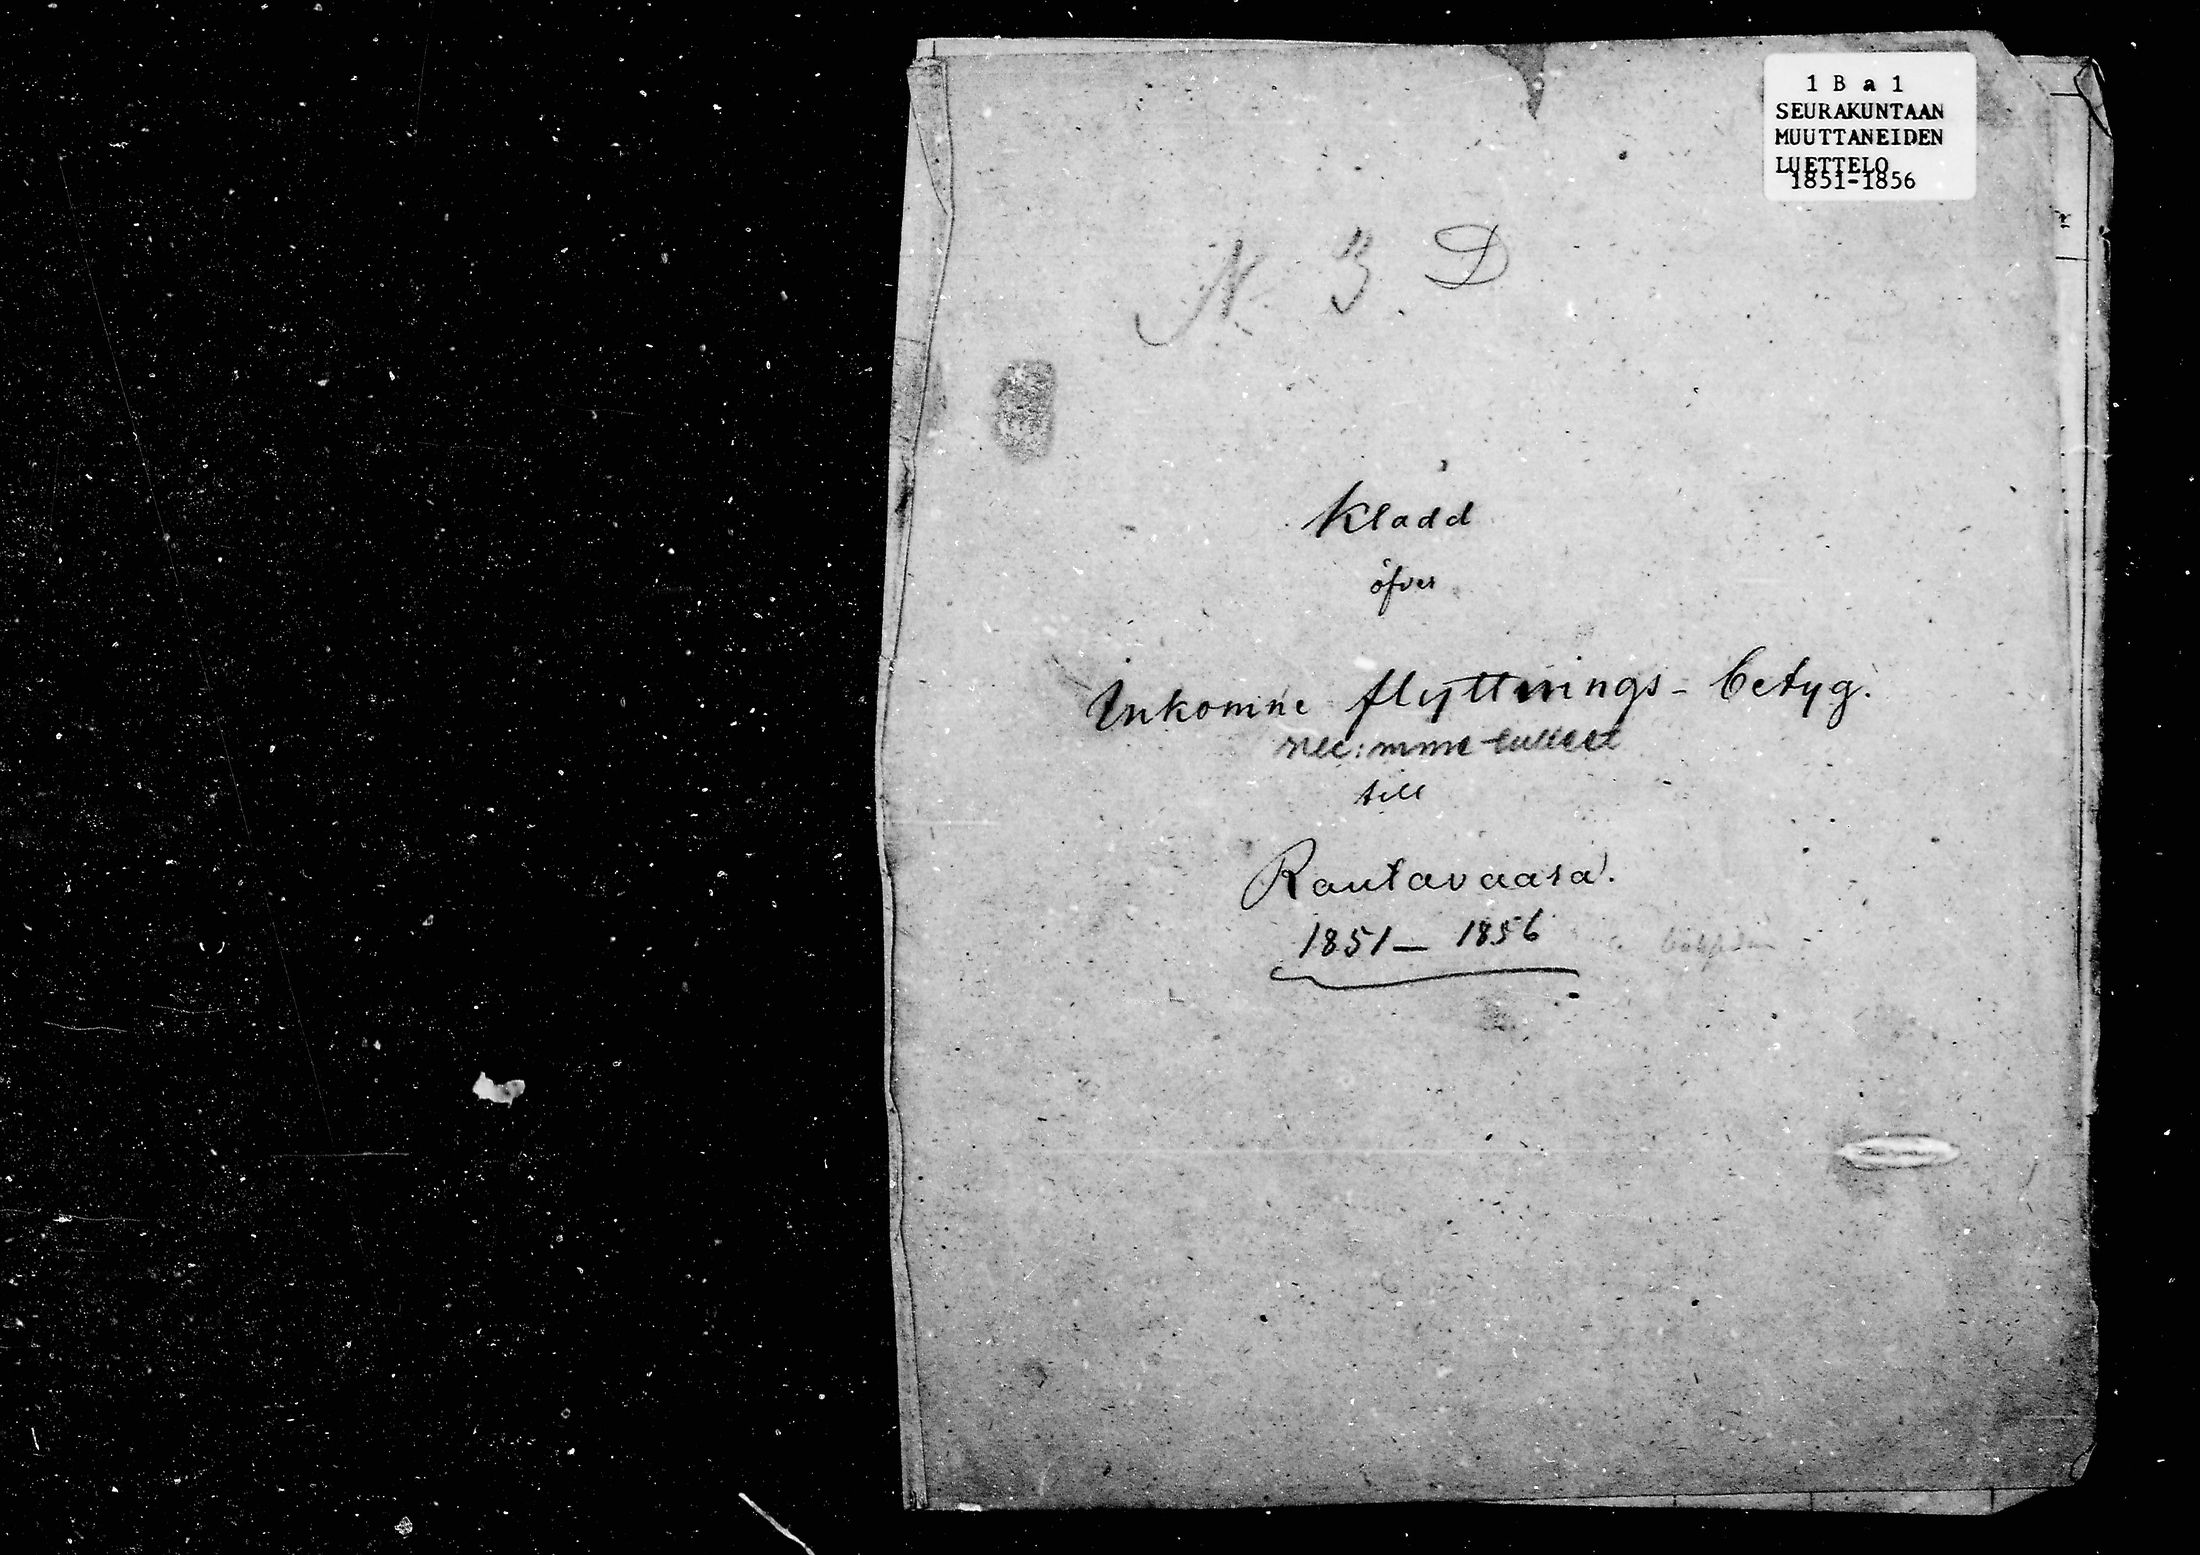 1 B a 1
SEURAKUNTAAN
MUUTTANEIDEN
LUETTELO
1851-1856
N. 3. D
Kladd
öfver
Inkomne flyttnings-betyg.
till
Rautavaara.
1851-1856